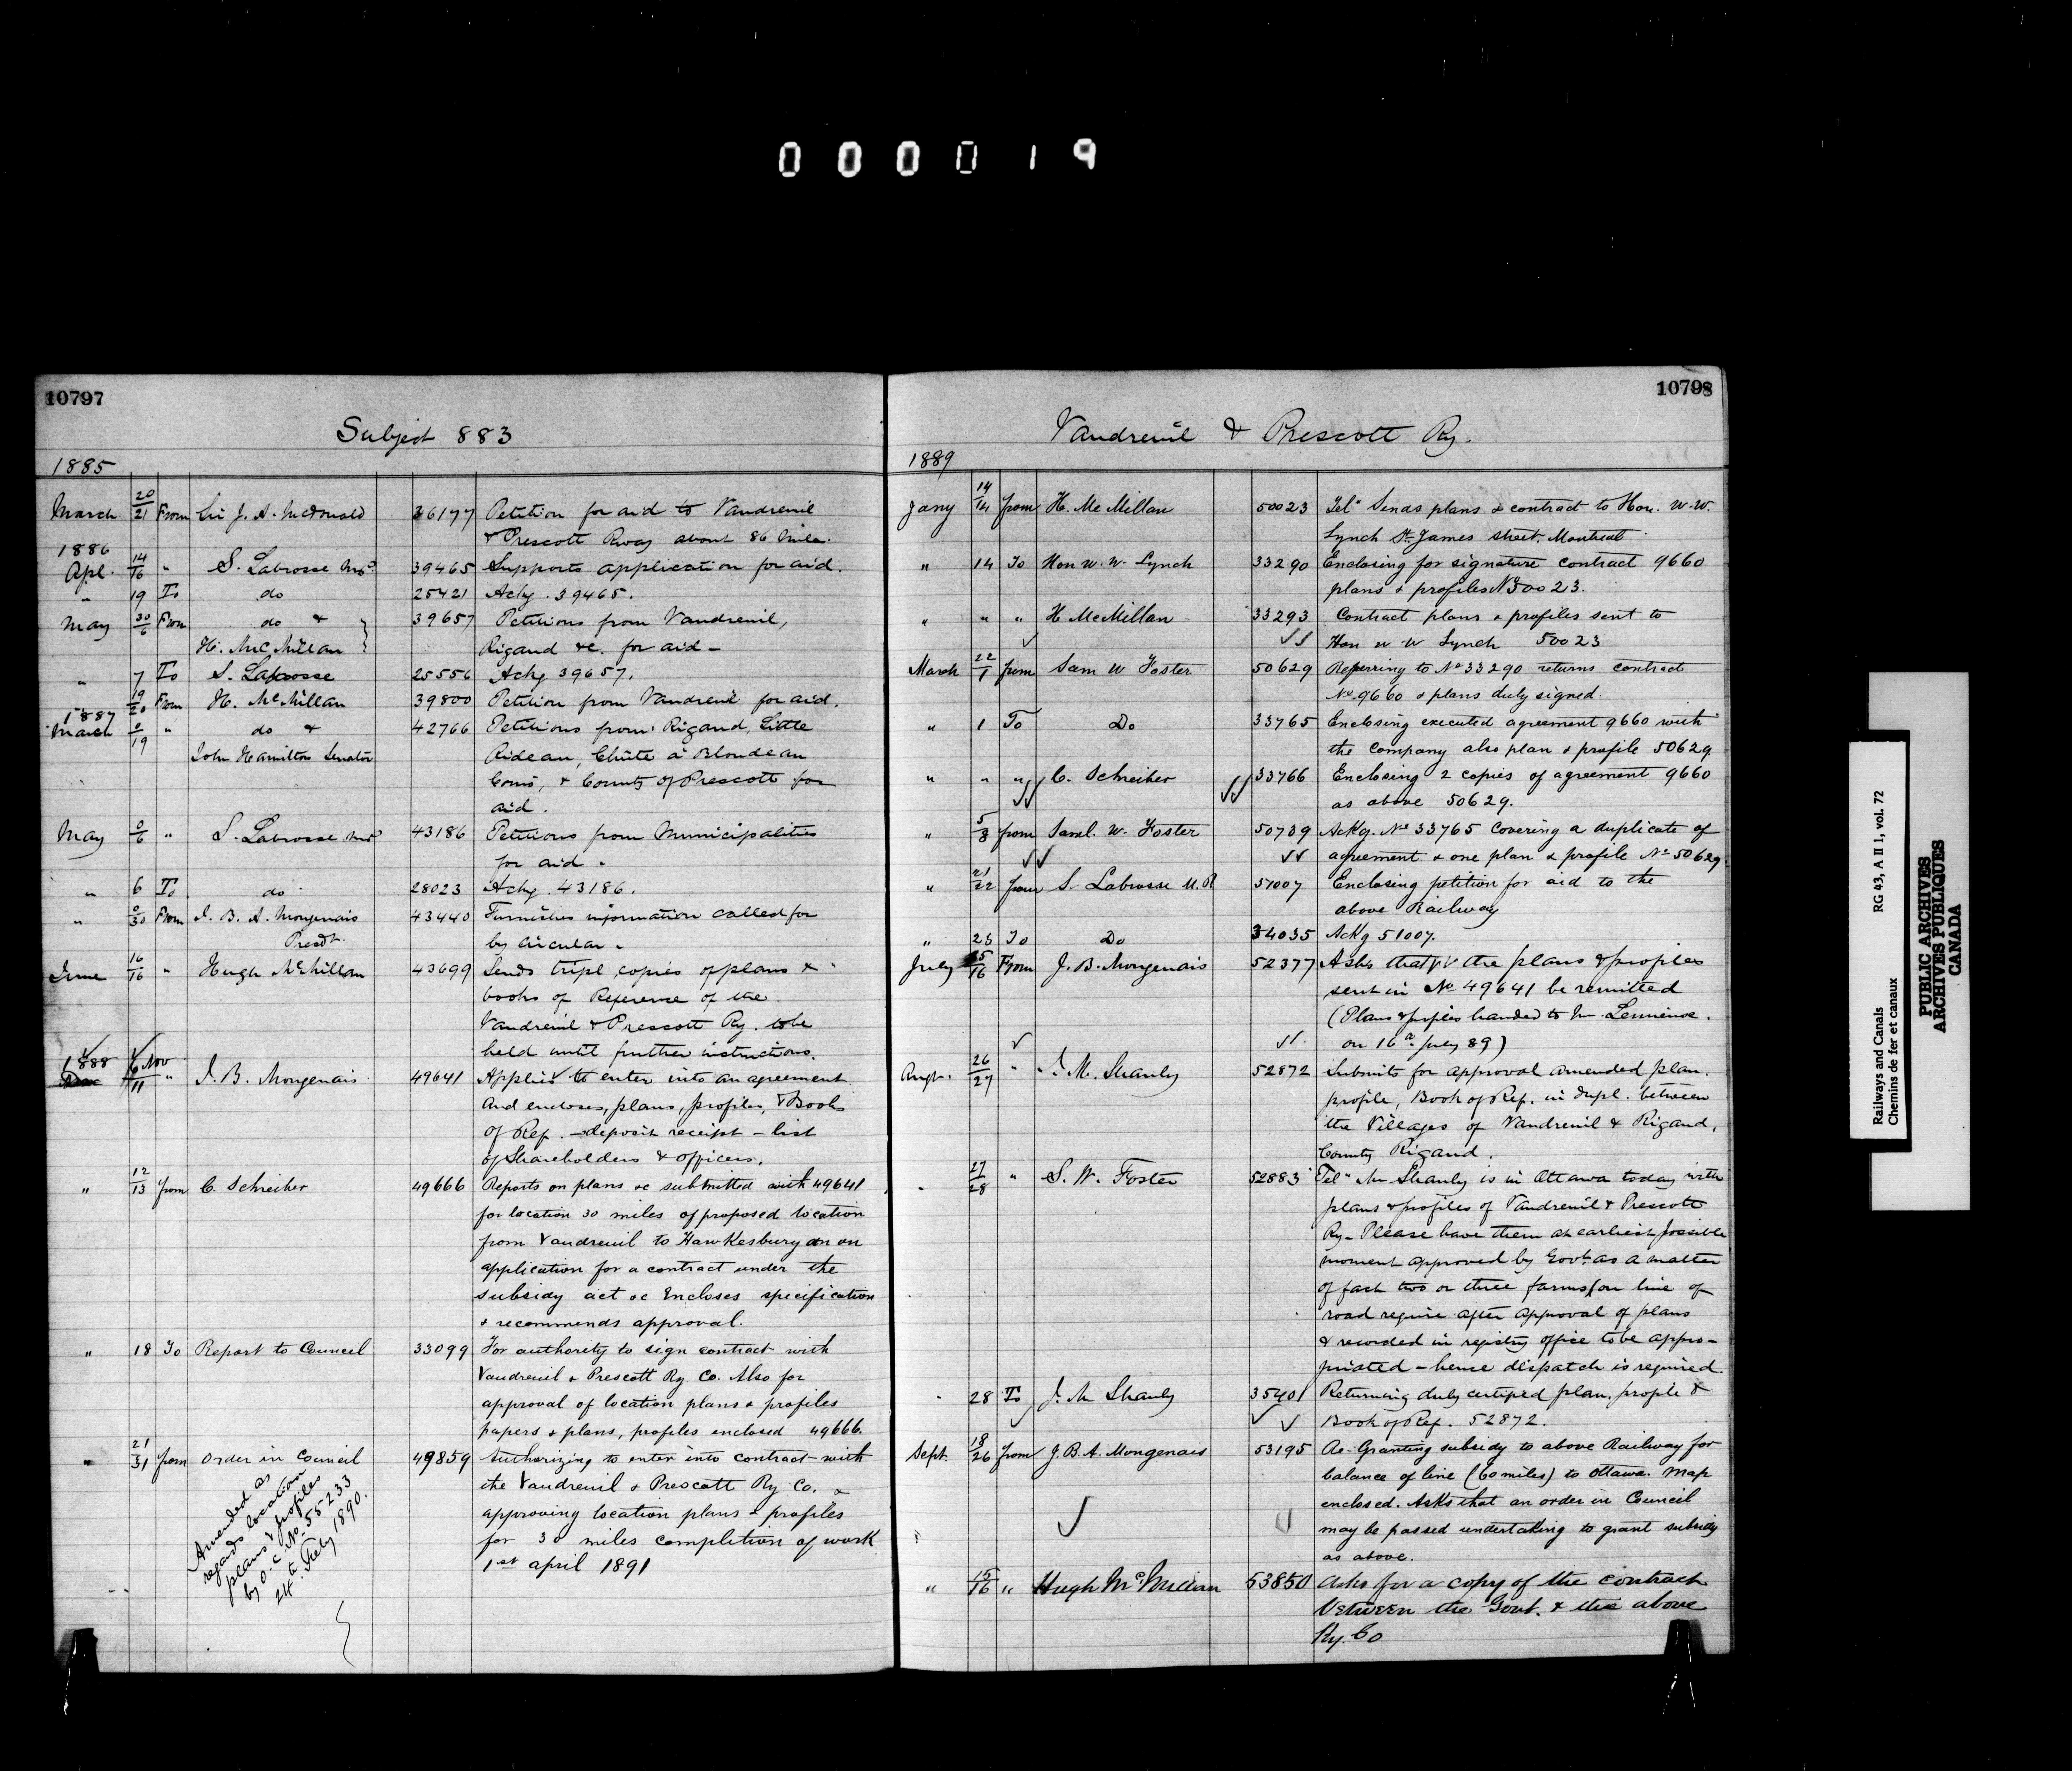 000019
10797
Subject 883
1885
March 20/21 From Sir J. A. McDonald 36177 Petition for aid to Vaudreuil
& Prescott Rway about 86 miles
1886
Apl. 14/16 " S. Labrosse 39465 Supports application for aid.
" 19 To do 25421 Ackg. 39465.
May 30/6 From do & 39657 Petitions from Vaudreuil,
H. McMillan Rigaud &c. for aid -
" 7 To S. Labrosse 25556 Ackg 39657.
19/20 From H. McMillan 39800 Petition from Vaudreuil for aid.
1887
March 0/19 " do & 42766 Petitions from Rigaud, Little
John Hamilton Senator Rideau, Chûte à Blondeau
Coms, & County of Prescott for
aid.
May 0/6 " S. Labrosse 43186 Petitions from Municipalities
for aid.
" 6 To do 28023 Ackg. 43186.
" 0/30 From J. B. A. Mongenais 43440 Furnishes information called for
Presdt. by circular.
June 16/16 " Hugh McMillan 43699 Sends tripl. copies of plans &
books of Reference of the
Vaudreuil & Prescott Ry. to be
held until further instructions.
1888
Nov /11 " J. B. Mongenais 49641 Applies to enter into an agreement
and encloses, plans, profiles, & Books
of Ref. - deposit receipt - list
of Shareholders & officers.
" 12/13 from C. Schreiber 49666 Reports on plans &c submitted with 49641
for location 30 miles of proposed location
from Vaudreuil to Hawkesbury on an
application for a contract under the
subsidy act &c Encloses specification
& recommends approval.
" 18 To Report to Council 33099 For authority to sign contract with
Vaudreuil & Prescott Ry. Co. Also for
approval of location plans & profiles
papers & plans, profiles enclosed 49666.
" 21/31 from Order in Council 49859 Authorizing to enter into contract with
the Vaudreuil & Prescott Ry Co. &
approving location plans & profiles
for 30 miles completion of work
1st april 1891
Amended as
regards location
plans & profiles
by O.C. No. 55233
24th July 1890.
10798
Vaudreuil & Prescott Ry.
1889
Jany 14/14 from H. McMillan 50023 Tel" Sends plans & contract to Hon. W. W.
Lynch St. James street. Montreal
" 14 To Hon W. W. Lynch 33290 Enclosing for signature contract 9660
plans & profiles No 50023.
" " " H McMillan 33293 Contract plans & profiles sent to
Hon W W Lynch 50023
March 22/1 from Sam W Foster 50629 Referring to No 33290 returns contract
No. 9660 & plans duly signed.
" 1 To Do 33765 Enclosing executed agreement 9660 with
the company also plan & profile 50629
" " " C. Schreiber 33766 Enclosing 2 copies of agreement 9660
as above 50629.
" 5/8 from Saml. W. Foster 50739 Ackg. No 33765 covering a duplicate of
agreement & one plan & profile No 50629.
" 21/22 from S. Labrosse M.P. 51007 Enclosing petition for aid to the
above Railway
" 23 To Do 34035 Ackg 51007.
July 15/16 From J. B. Mongenais 52377 Asks that the plans & profiles
sent in No 49641 be remitted
(Plans & profiles handed to Mr.
on 16th July 89)
Augt. 26/27 " J. M. Shanly 52872 Submits for approval amended plan.
profile, Book of Ref. in dupl. between
the Villages of Vaudreuil & Rigaud,
County Rigaud.
" 27/28 " S. W. Foster 52883 Tel" Mr Shanly is in Ottawa today with
plans & profiles of Vaudreuil & Prescott
Ry - Please have them at earliest possible
moment approved by Govt. as a matter
of fact two or three farms on line of
road require after approval of plans
& recorded in registry office to be appro-
priated - hence dispatch is required.
" 28 To J. M Shanly 35401 Returning duly certified plan, profile &
Book of Ref. 52872.
Sept. 18/26 from J. B. A. Mongenais 53195 Re-Granting subsidy to above Railway for
balance of line (60 miles) to Ottawa. Map
enclosed. Asks that an order in Council
may be passed undertaking to grant subsidy
as above.
" 15/16 " Hugh McMillan 53850 Asks for a copy of the contract
between the Govt. & the above
Ry. Co
Railways and Canals RG 43, A II 1, vol. 72
Chemins de fer et canaux
PUBLIC ARCHIVES
ARCHIVES PUBLIQUES
CANADA